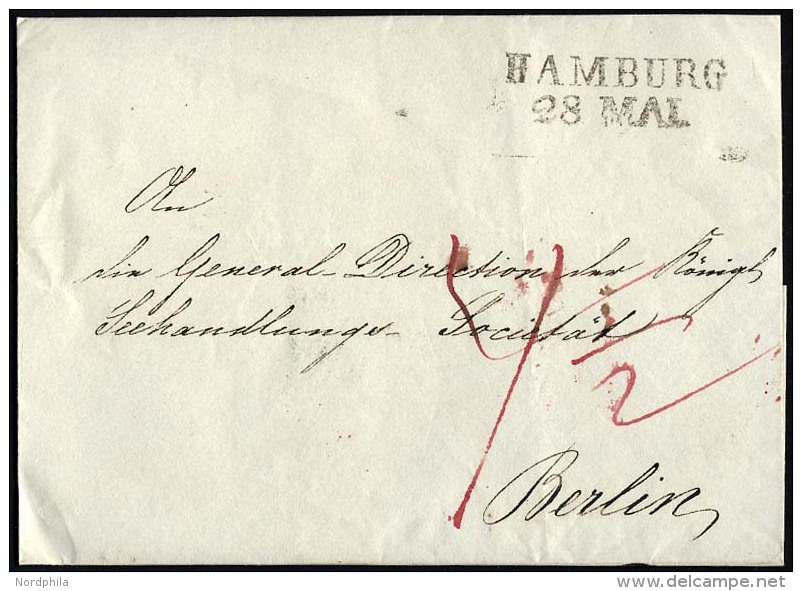 HAMBURG
28 MAI.
An
die General-Direction der Königl
Seehandlungs- Societät
4 1/2
Berlin
Nordphila
delcampe.net